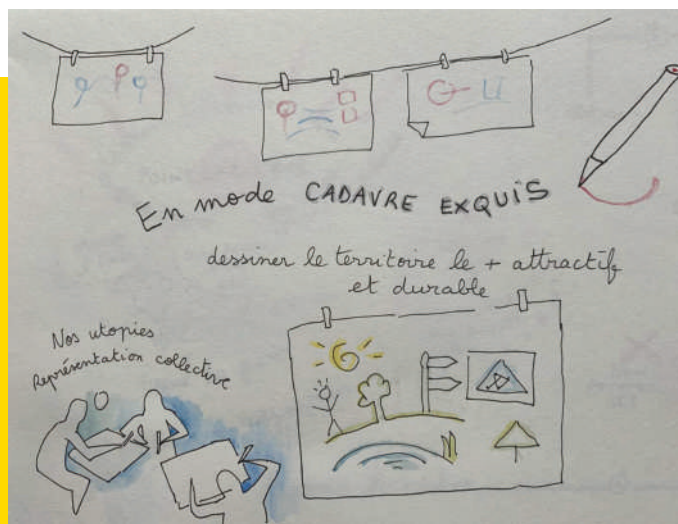 En mode CADAVRE EXQUIS
dessiner le territoire le + attractif
et durable
Nos utopies
Représentation collective